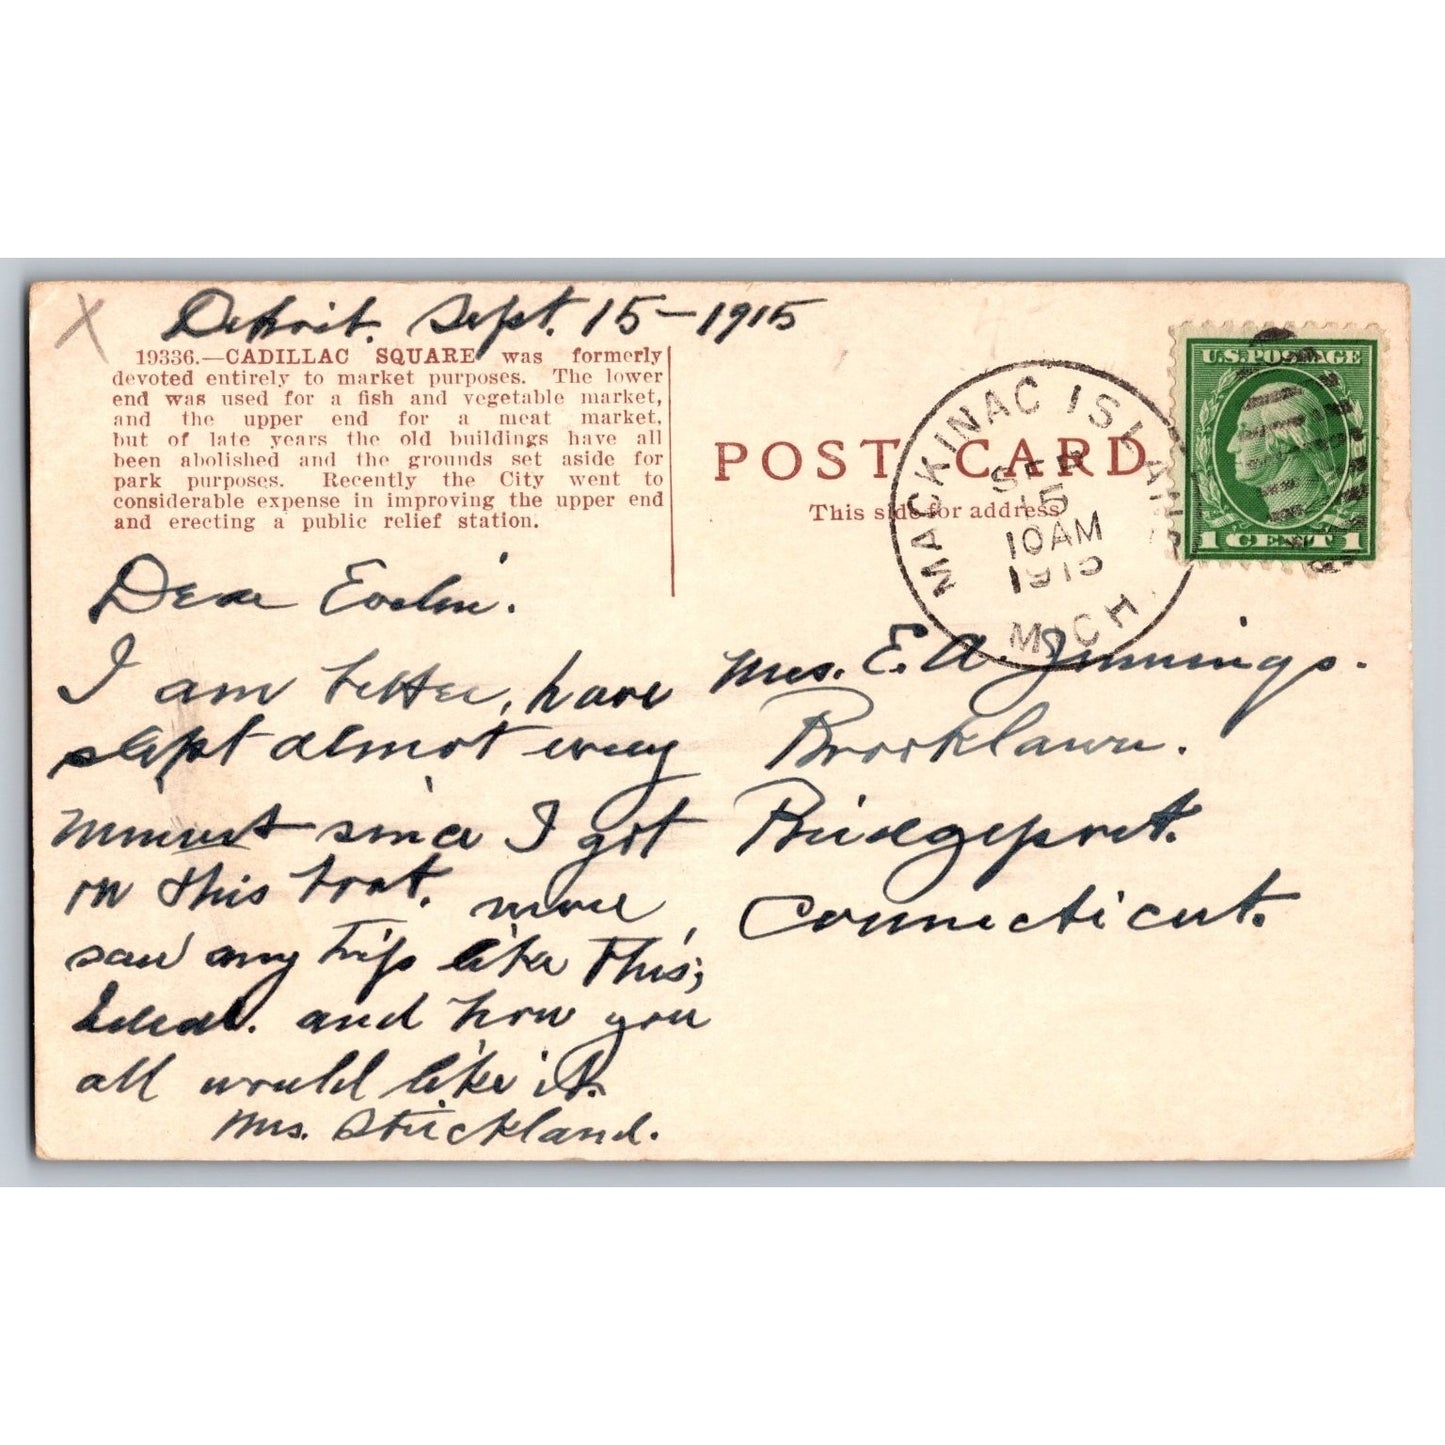 X
Detroit. Sept. 15-1915
19336.—CADILLAC SQUARE was formerly
devoted entirely to market purposes. The lower
end was used for a fish and vegetable market,
and the upper end for a meat market,
but of late years the old buildings have all
been abolished and the grounds set aside for
park purposes. Recently the City went to
considerable expense in improving the upper end
and erecting a public relief station.
Dear Evelin.
I am better, have
slept almost every
minuet since I got
on this boat. never
saw any trip like this,
Ideal. and how you
all would like it.
Mrs. Strickland.
POST CARD
This side for address
MACKINAC ISLAND
SEP
15
10AM
1915
MICH.
U.S. POSTAGE
1 CENT 1
Mrs. E. A. Jennings.
Brooklawn.
Bridgeport.
Connecticut.